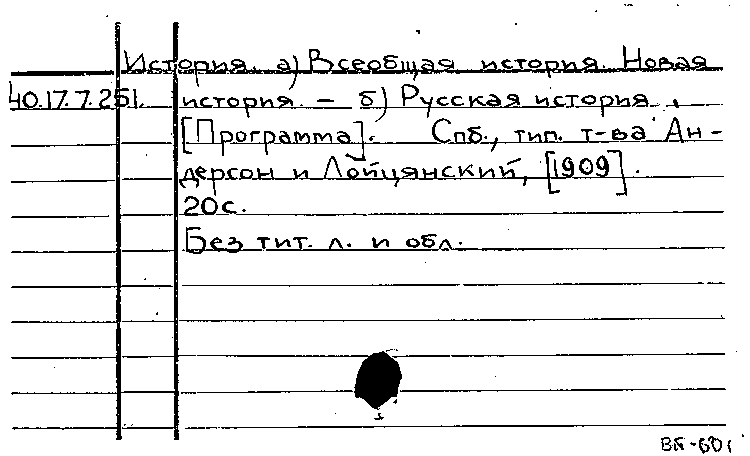 История. а) Всеобщая история. Новая
40.17.7.251. история. – б) Русская история.
[Программа]. Спб., тип. т-ва Ан-
дерсон и Лойцянский, [1909].
20с.
Без тит. л. и обл.